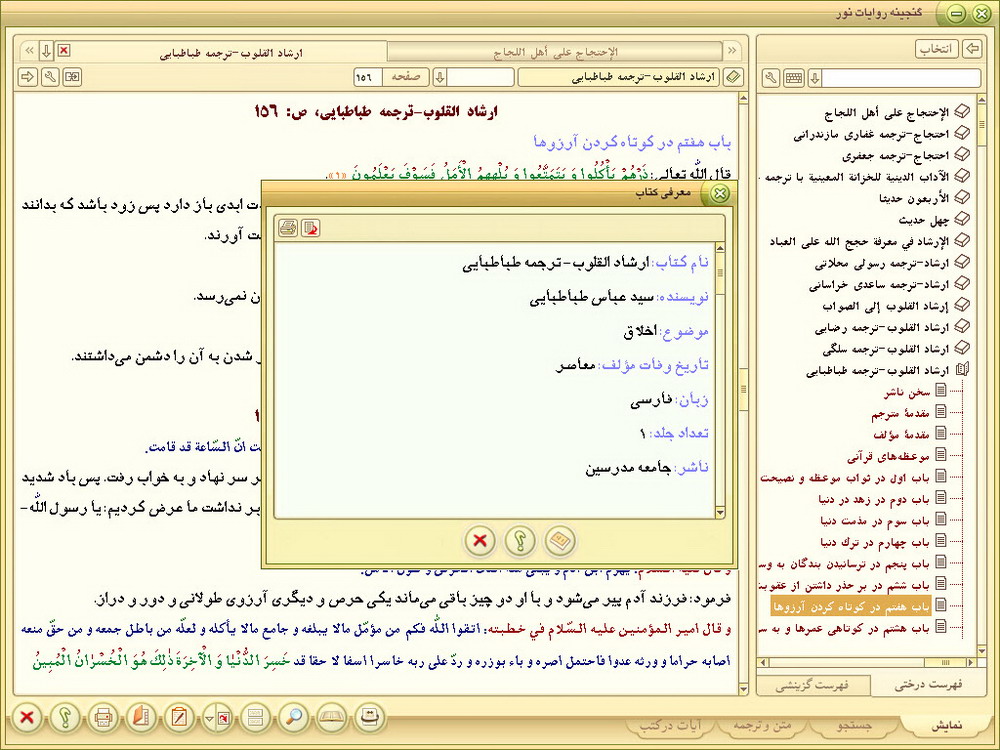 گنجینه روایات نور
انتخاب
الإحتجاج على أهل اللجاج
ارشاد القلوب-ترجمه طباطبایی
ارشاد القلوب-ترجمه طباطبایی
صفحه
١٥٦
ارشاد القلوب-ترجمه طباطبایی، ص: ١٥٦
باب هفتم در کوتاه کردن آرزوها
قال اللّه تعالى: ذَرْهُمْ يَأْكُلُوا وَ يَتَمَتَّعُوا وَ يُلْهِهِمُ الْأَمَلُ فَسَوْفَ يَعْلَمُونَ «١».
ت ابدی باز دارد پس زود باشد که بدانند
ت آورند.
ن نمی‌رسد.
ر شدن به آن را دشمن می‌داشتند.
ت انّ السّاعة قد قامت.
ر سر نهاد و به خواب رفت. پس باد شدید
بر نداشت ما عرض کردیم: یا رسول اللّه-
فرمود: فرزند آدم پیر می‌شود و با او دو چیز باقی می‌ماند یکی حرص و دیگری آرزوی طولانی و دور و دراز.
و قال امیر المؤمنین علیه السّلام في خطبته: اتقوا اللّه فكم من مؤمّل مالا يبلغه و جامع مالا يأكله و لعلّه من باطل جمعه و من حقّ منعه
اصابه حراما و ورثه عدوا فاحتمل اصره و باء بوزره و ردّ على ربه خاسرا اسفا لا حقا قد خَسِرَ الدُّنْيَا وَ الْآخِرَةَ ذَلِكَ هُوَ الْخُسْرَانُ الْمُبِينُ
معرفی کتاب
نام کتاب: ارشاد القلوب-ترجمه طباطبایی
نویسنده: سید عباس طباطبایی
موضوع: اخلاق
تاریخ وفات مؤلف: معاصر
زبان: فارسی
تعداد جلد: ١
ناشر: جامعه مدرسین
الإحتجاج على أهل اللجاج
احتجاج-ترجمه غفاری مازندرانی
احتجاج-ترجمه جعفری
الآداب الدینیة للخزانة المعینیة با ترجمه -
الأربعون حدیثا
چهل حدیث
الإرشاد في معرفة حجج الله على العباد
ارشاد-ترجمه رسولی محلاتی
ارشاد-ترجمه ساعدی خراسانی
إرشاد القلوب إلى الصواب
ارشاد القلوب-ترجمه رضایی
ارشاد القلوب-ترجمه سلگی
ارشاد القلوب-ترجمه طباطبایی
سخن ناشر
مقدمهٔ مترجم
مقدمهٔ مؤلف
موعظه‌های قرآنی
باب اول در ثواب موعظه و نصیحت
باب دوم در زهد در دنیا
باب سوم در مذمت دنیا
باب چهارم در ترك دنیا
باب پنجم در ترسانیدن بندگان به وس
باب ششم در بر حذر داشتن از عقوبت
باب هفتم در کوتاه کردن آرزوها
باب هشتم در کوتاهی عمرها و به سر
فهرست درختی
فهرست گزینشی
نمایش
جستجو
متن و ترجمه
آیات در کتب